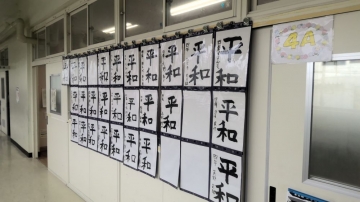 4A
平和 平和 平和 平和 平和 平和 平和 平和 平和 平和
平和 平和 平和 平和 平和 平和 平和 平和 平和
平和 平和 平和 平和 平和 平和 平和 平和